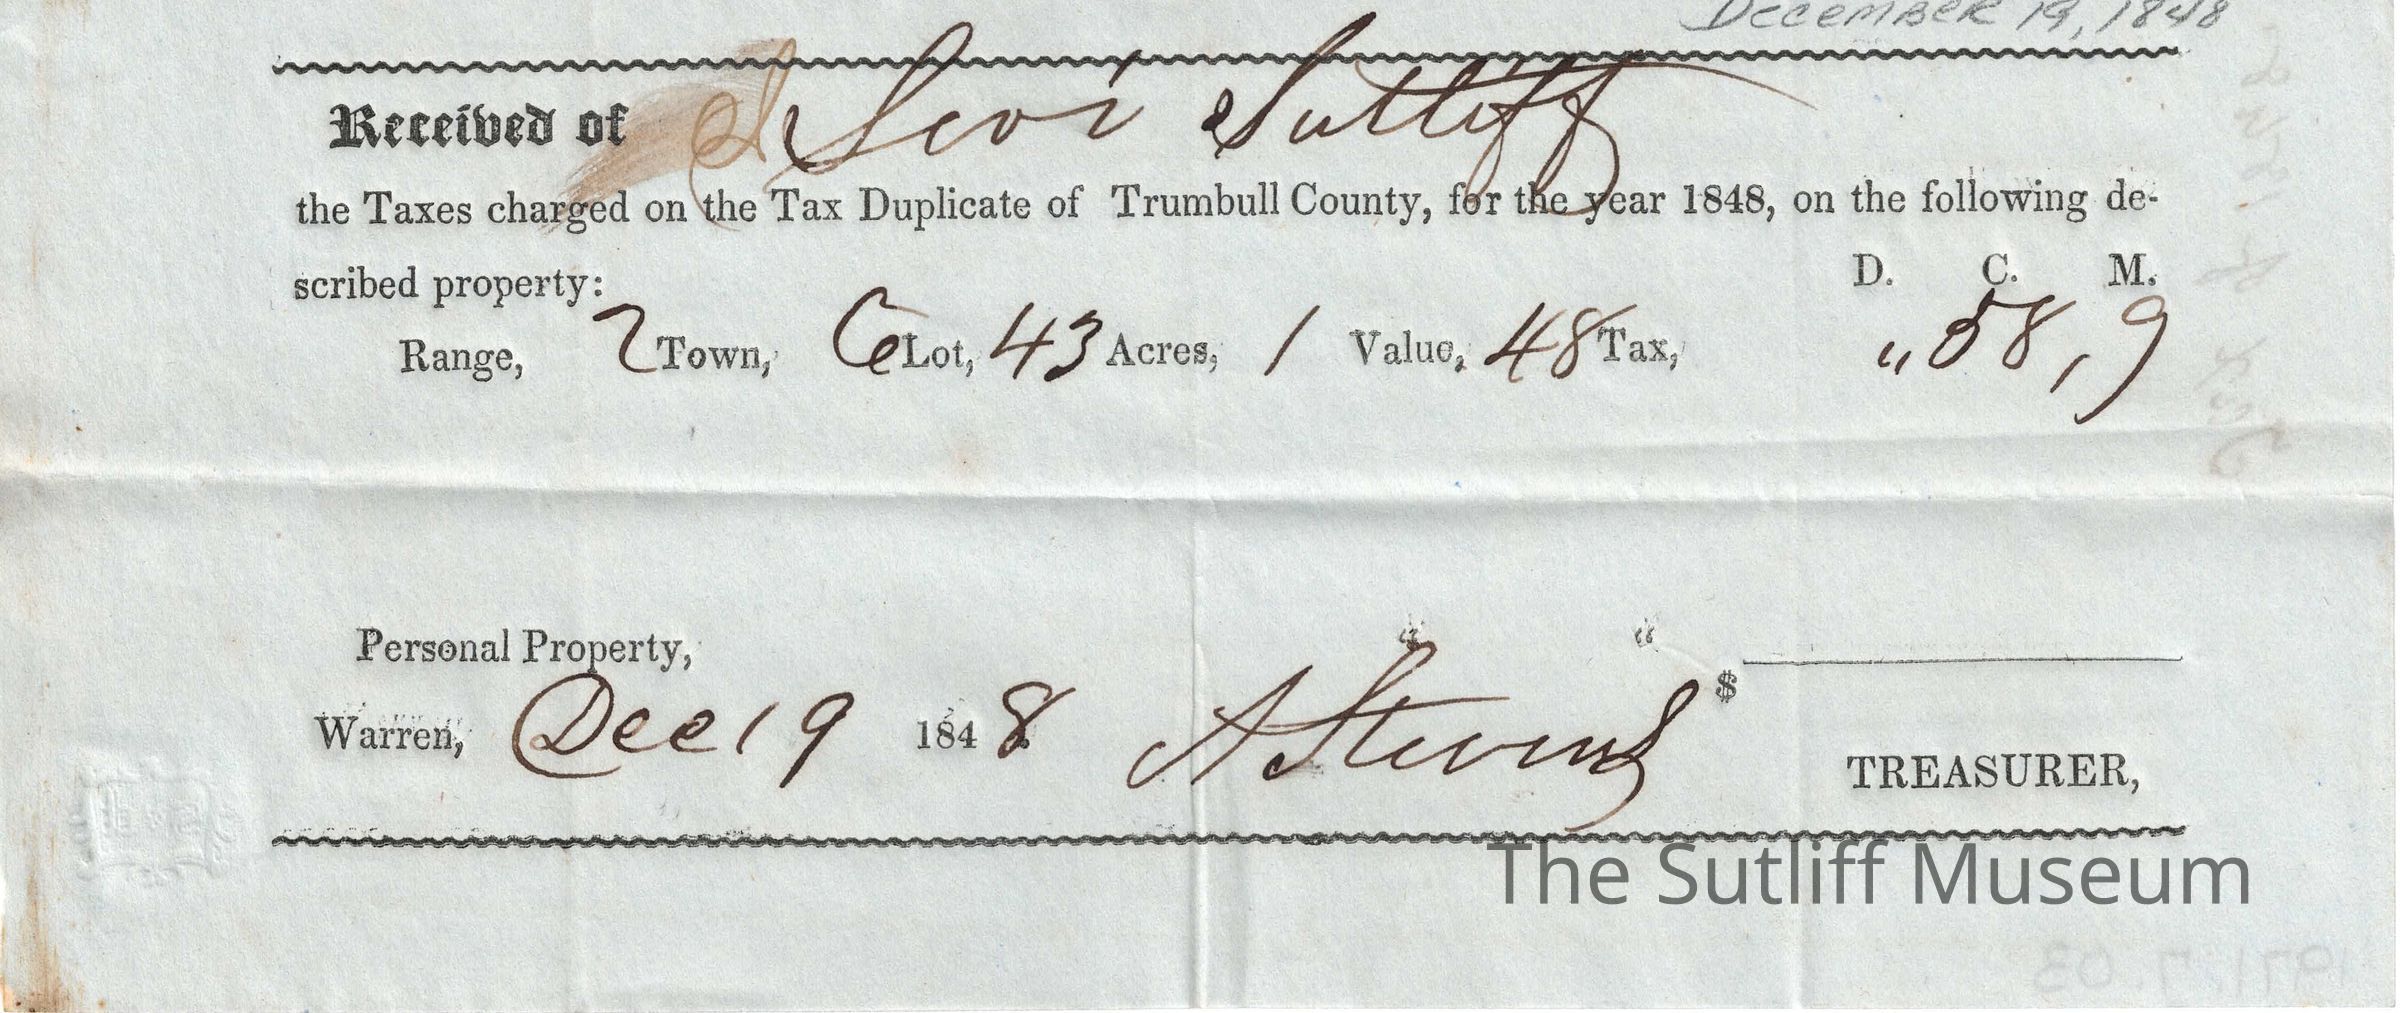 DECEMBER 19, 1848
Received of Sutliff
the Taxes charged on the Tax Duplicate of Trumbull County, for the year 1848, on the following de-
scribed property:
D. C. M.
Range, 2 Town, 6 Lot, 43 Acres, 1 Value, 48 Tax, „ 58, 9
Personal Property, " "
$
Warren, Dec 19 1848 A Stevens
TREASURER,
The Sutliff Museum
1971.7.03